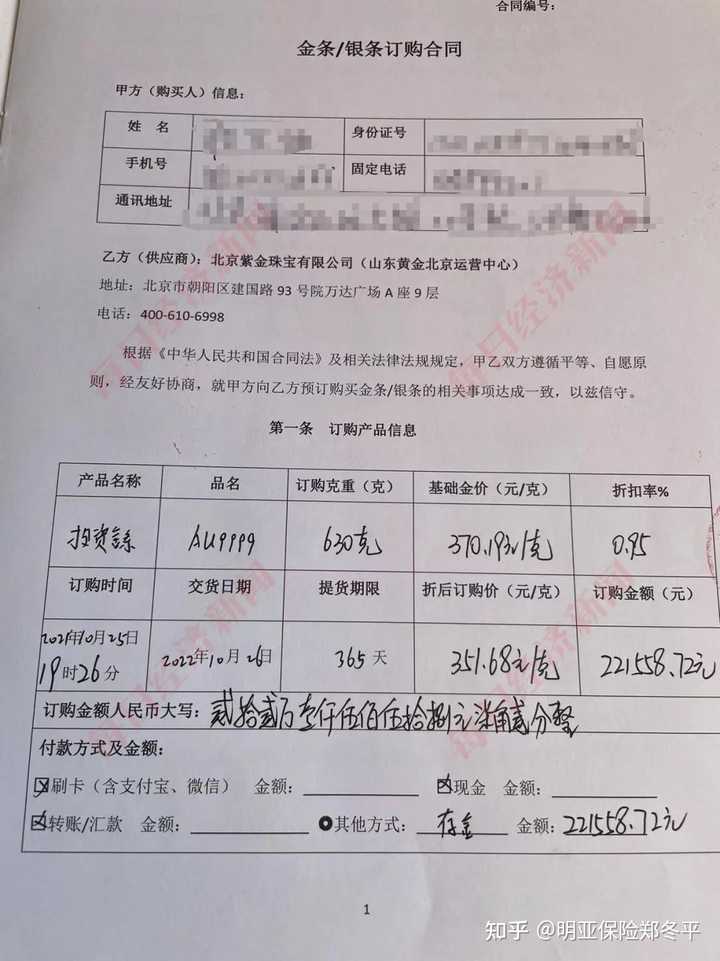 合同编号：
金条/银条订购合同
甲方（购买人）信息：
姓 名 身份证号
手机号 固定电话
通讯地址
乙方（供应商）：北京紫金珠宝有限公司（山东黄金北京运营中心）
地址：北京市朝阳区建国路 93 号院万达广场 A 座 9 层
电话：400-610-6998
根据《中华人民共和国合同法》及相关法律法规规定，甲乙双方遵循平等、自愿原
则，经友好协商，就甲方向乙方预订购买金条/银条的相关事项达成一致，以兹信守。
第一条 订购产品信息
产品名称 品名 订购克重（克） 基础金价（元/克） 折扣率%
投资金条 AU9999 630克 370.19元/克 0.95
订购时间 交货日期 提货期限 折后订购价（元/克） 订购金额（元）
2021年10月25日
19时26分 2022年10月26日 365天 351.68元/克 221558.72元
订购金额人民币大写：贰拾贰万壹仟伍佰伍拾捌元柒角贰分整
付款方式及金额：
刷卡（含支付宝、微信） 金额： 现金 金额：
转账/汇款 金额： 其他方式：存金 金额：221558.72元
1
每日经济新闻
每日经济新闻
每日经济新闻
每日经济新闻
知乎 @明亚保险郑冬平